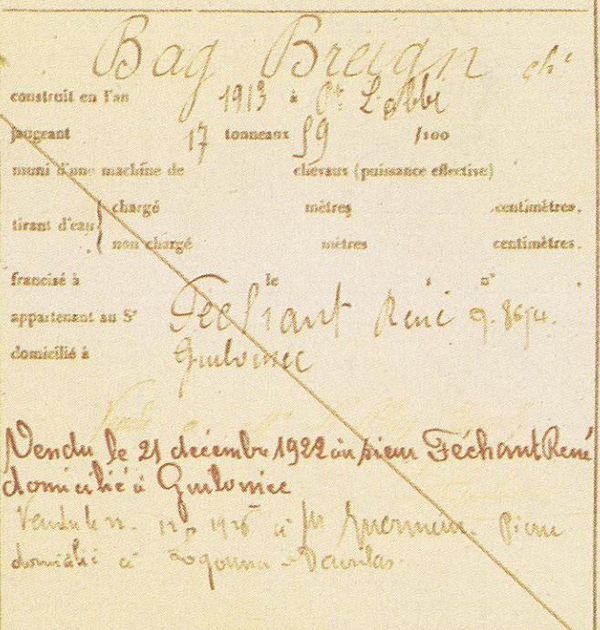 Bag Breign
construit en l'an 1913 à Pt L'Abbé
jaugeant 17 tonneaux 59 /100
muni d'une machine de chevaux (puissance effective)
tirant d'eau { chargé mètres centimètres.
non chargé mètres centimètres.
francisé à le , n° .
appartenant au Sr Féchant René
domicilié à Guilvinec
Vendu le 21 décembre 1922 au sieur Féchant René
domicilié à Guilvinec
Vendu le 1926 à Mr Guermeur Pierre
domicilié à Logonna-Daoulas.